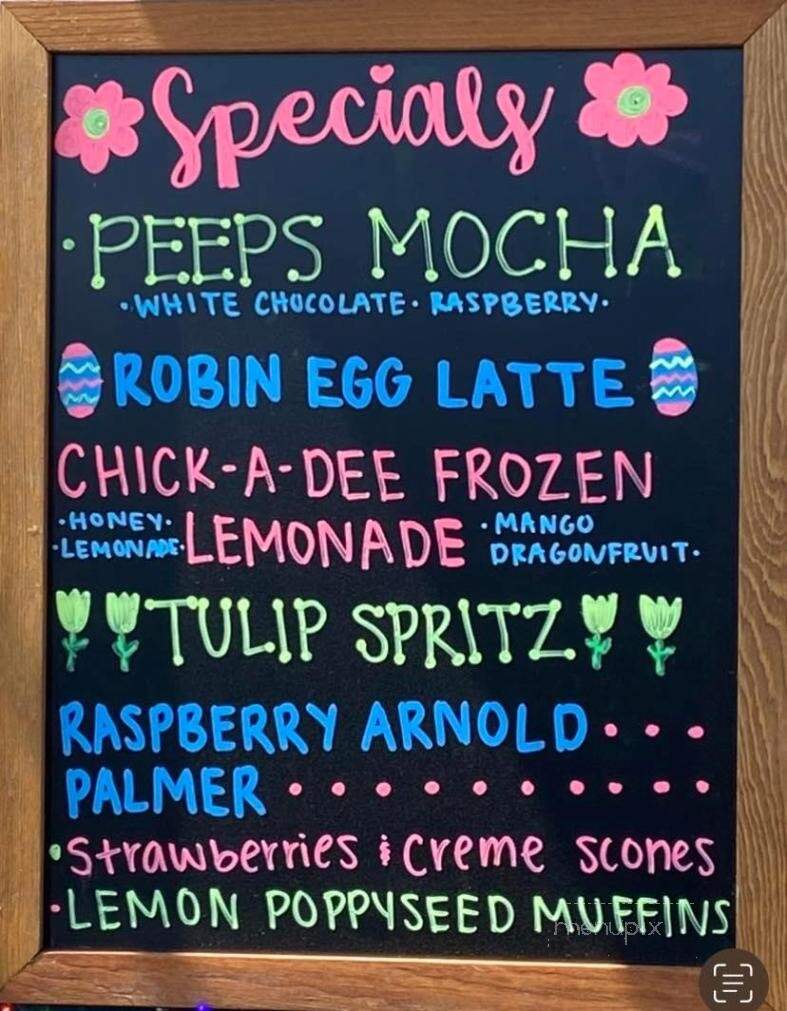 Specials
·PEEPS MOCHA
·WHITE CHOCOLATE· RASPBERRY·
ROBIN EGG LATTE
CHICK-A-DEE FROZEN
·HONEY·
·LEMONADE·
LEMONADE
·MANGO
DRAGONFRUIT·
TULIP SPRITZ
RASPBERRY ARNOLD · · ·
PALMER · · · · · · · · · ·
·Strawberries & Creme scones
·LEMON POPPYSEED MUFFINS
menupix